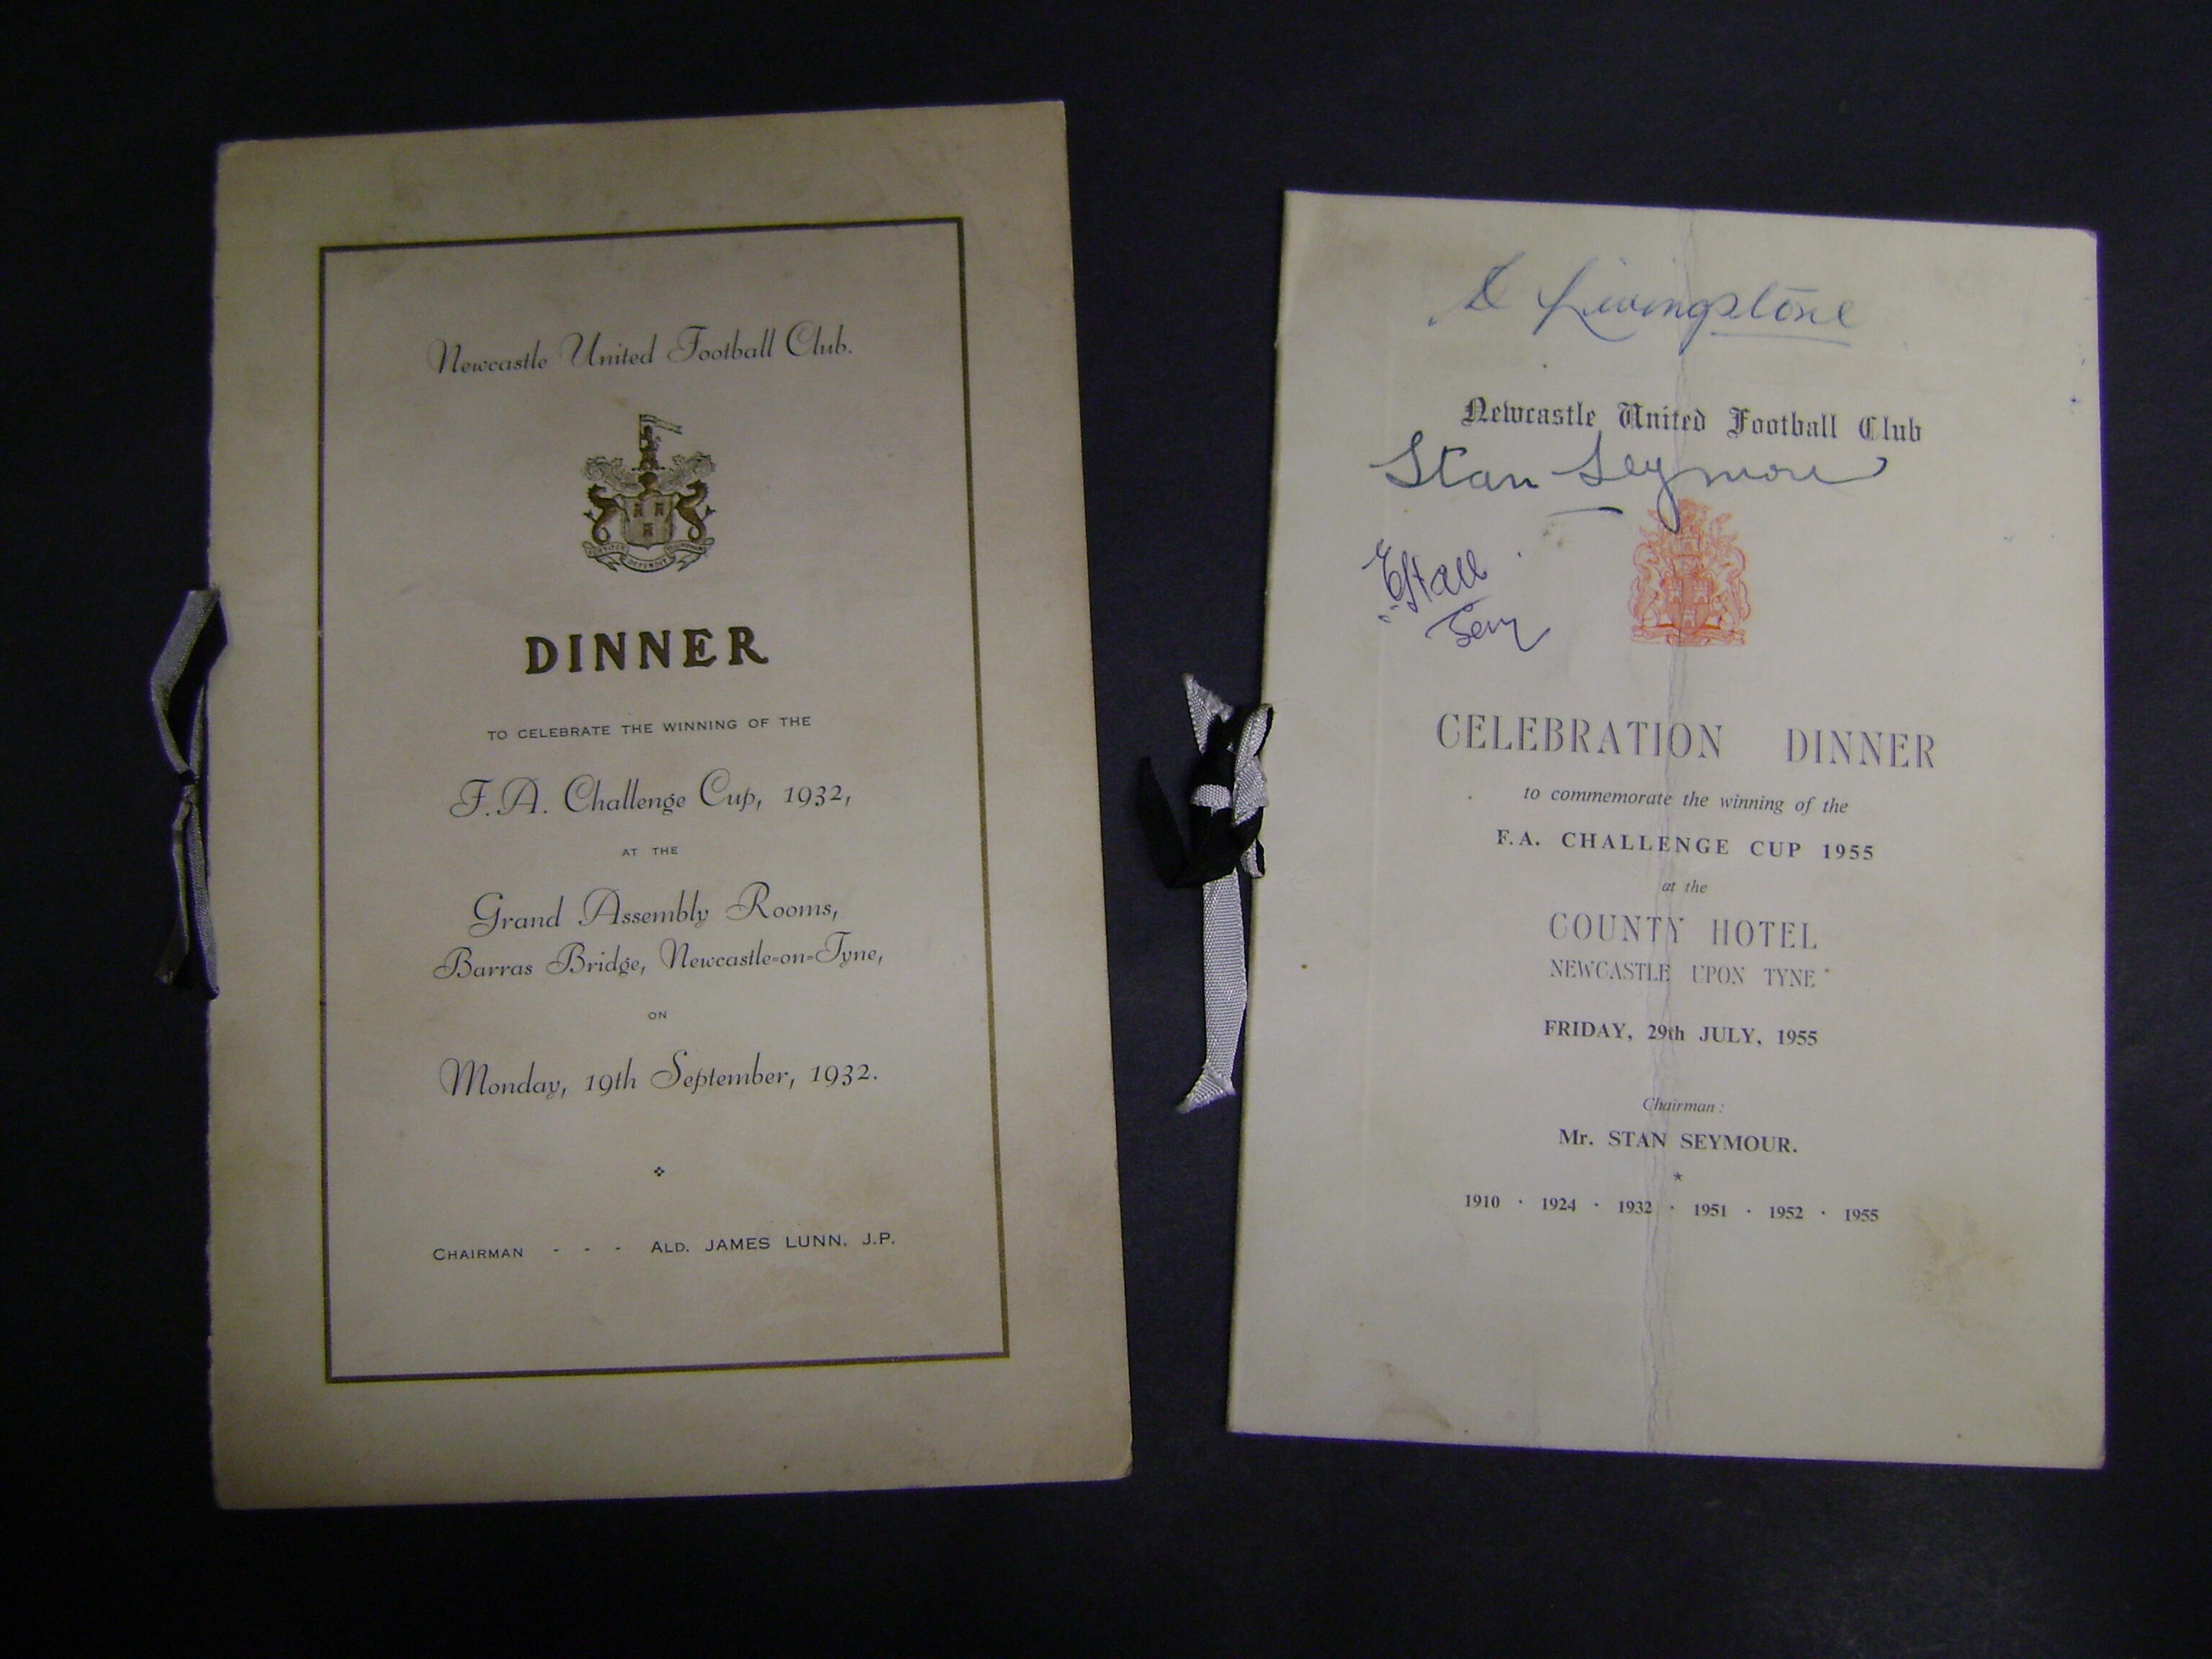 Newcastle United Football Club.
DINNER
TO CELEBRATE THE WINNING OF THE
F.A. Challenge Cup, 1932,
AT THE
Grand Assembly Rooms,
Barras Bridge, Newcastle-on-Tyne,
ON
Monday, 19th September, 1932.
CHAIRMAN - - - ALD. JAMES LUNN, J.P.
D Livingstone
Newcastle United Football Club
Stan Seymour
CELEBRATION DINNER
to commemorate the winning of the
F.A. CHALLENGE CUP 1955
at the
COUNTY HOTEL
NEWCASTLE UPON TYNE
FRIDAY, 29th JULY, 1955
Chairman:
Mr. STAN SEYMOUR.
1910 · 1924 · 1932 · 1951 · 1952 · 1955